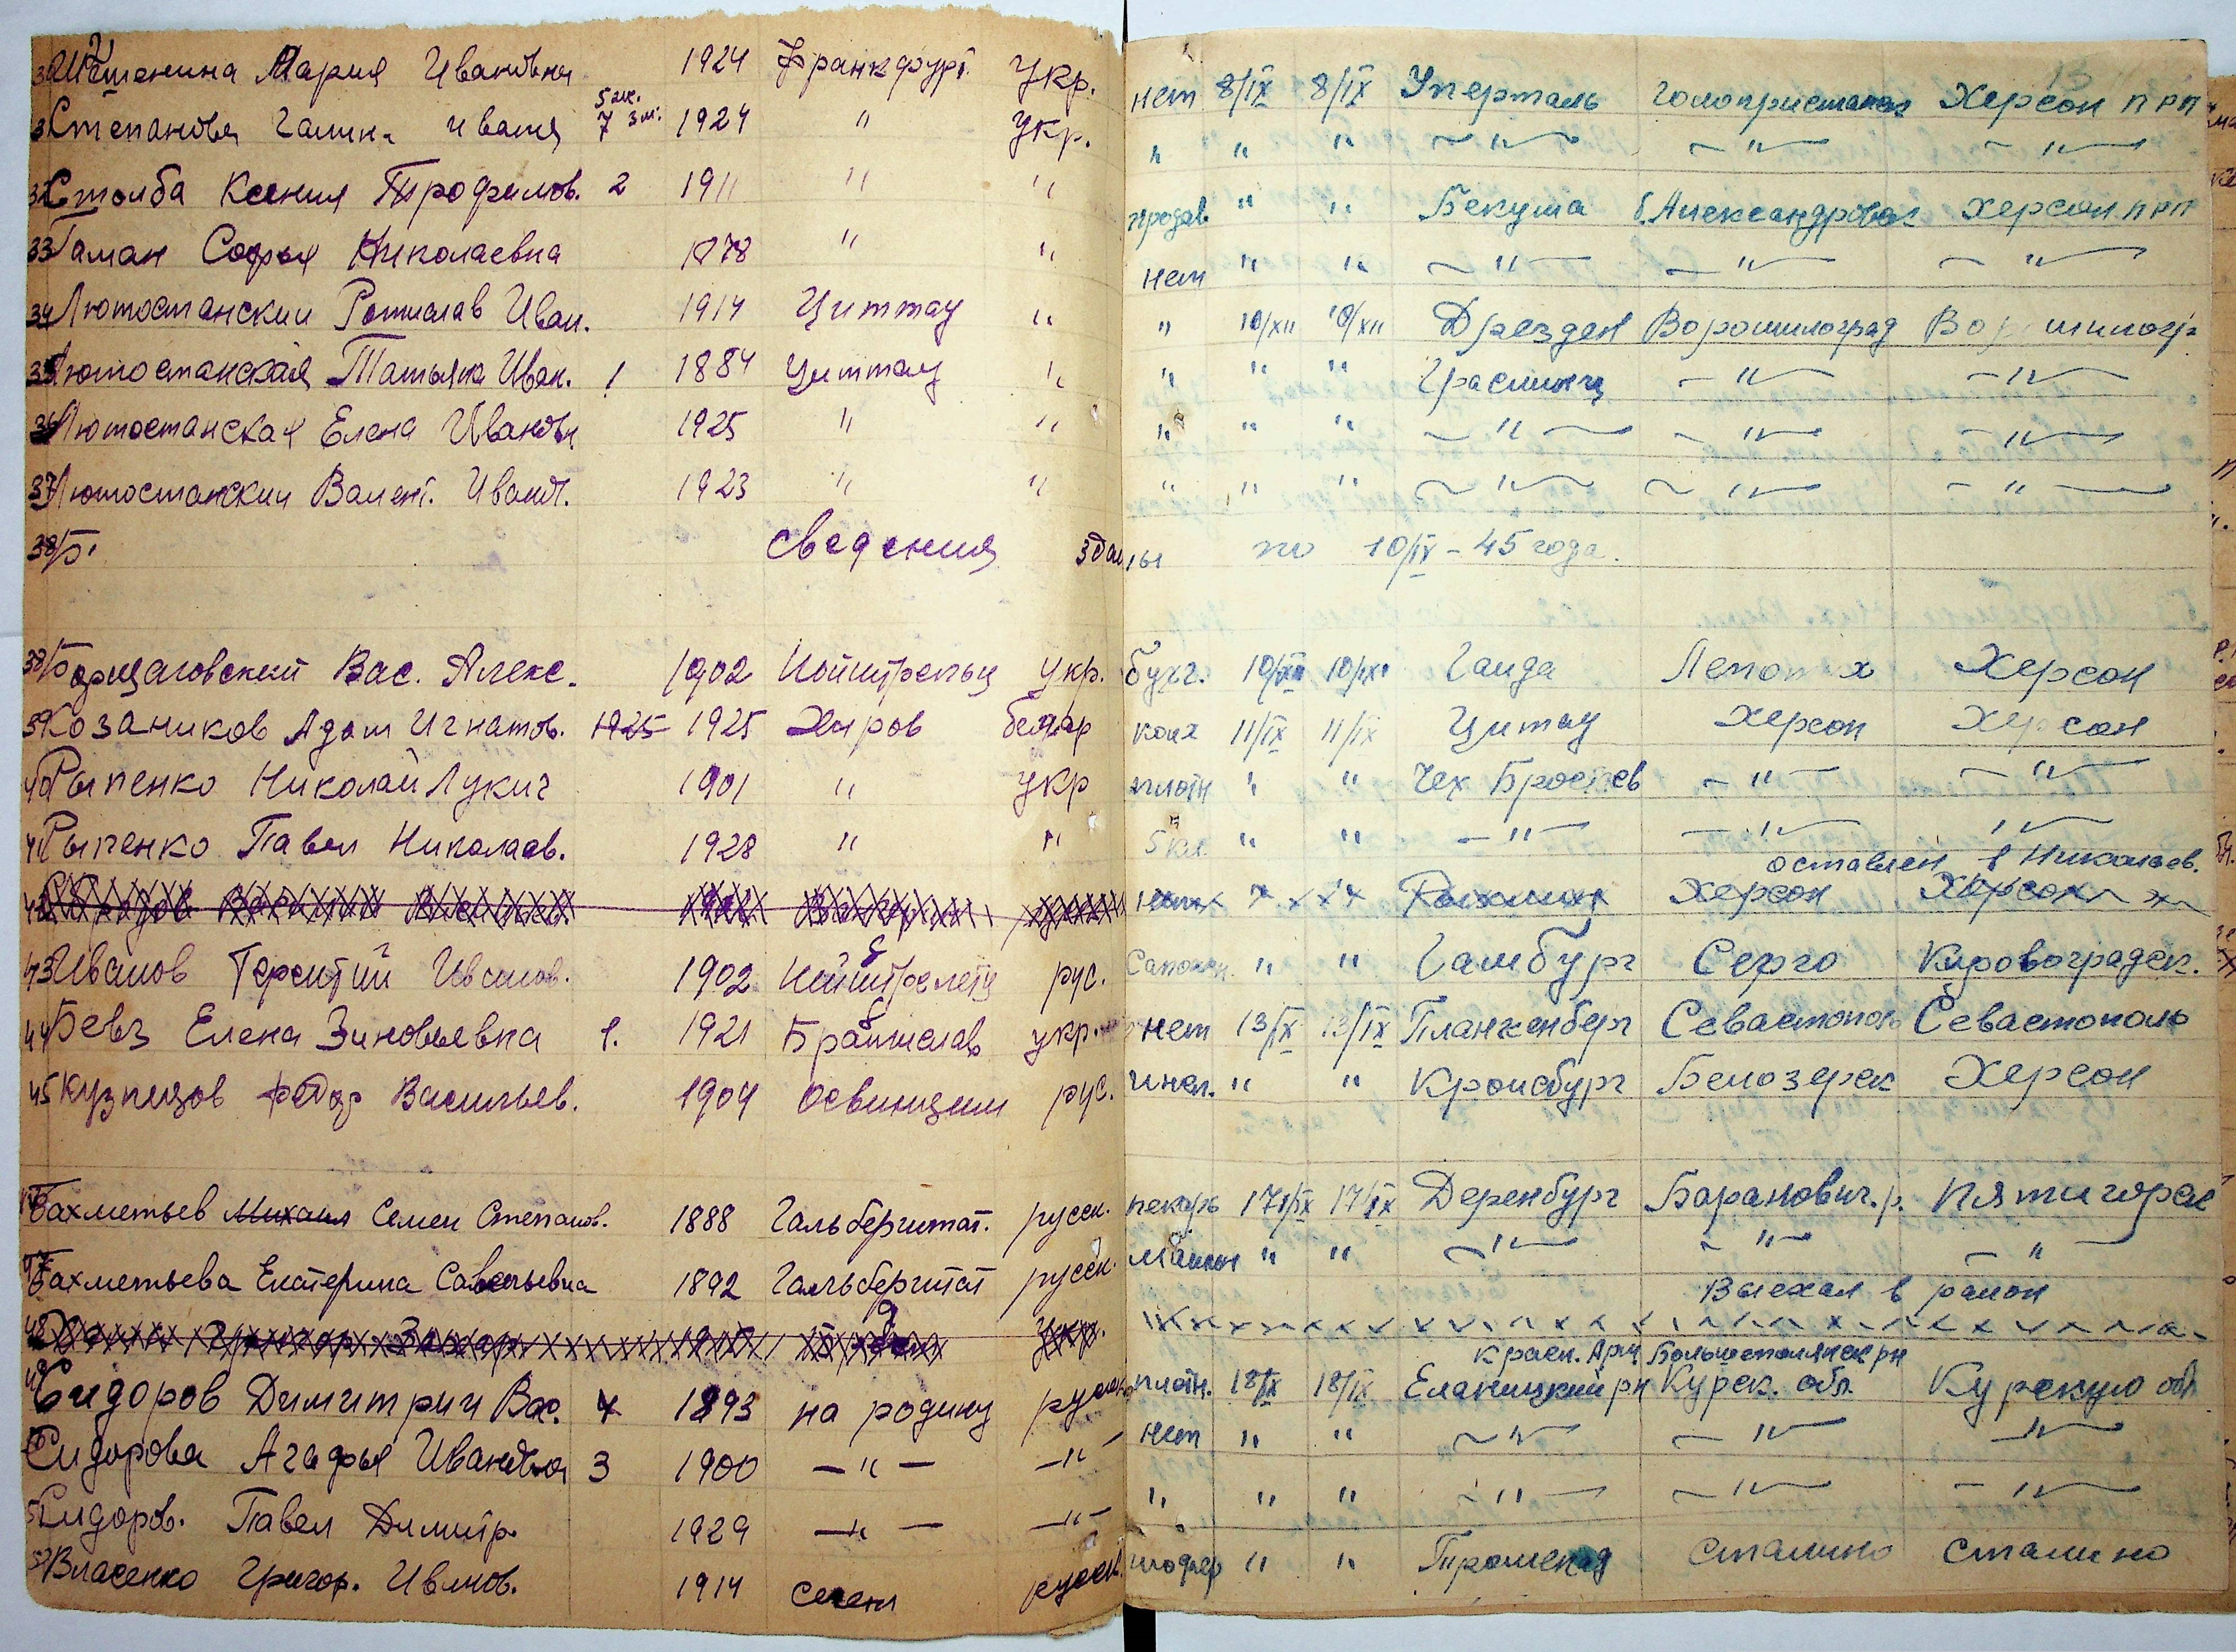 Мария Ивановна 1924 Франкфурт Укр. нет 8/IX 8/IX Уперталь Голопристанск Херсон ПРП
5 лк.
Степанова Галина 7 3 м. 1924 " Укр. " " " ~"~ ~"~ ~"~
32 Столба Ксения Трофимов. 2 1911 " " продав. " " Бекуша б. Александровск Херсон ПРП
33 Гаман Софья Николаевна 1878 " " нет " " ~"~ ~"~ ~"~
34 Лютостанский Ростислав Иван. 1914 Циттау " " 10/XII 10/XII Дрезден Ворошилоград
35 Лютостанская Татьяна Иван. 1 1884 Циттау " " " " ~"~ ~"~
36 Лютостанская Елена Ивановн. 1925 " " " " " ~"~ ~"~ ~"~
37 Лютостанский Валент. Иванов. 1923 " " " " " ~"~ ~"~ ~"~
38 Б. сведения зданы по 10/IX - 45 года.
38 Борщаговский Вас. Алекс. 1902 Укр. бухг. Гайда Херсон
39 Козаников Адам Игнатов. 1925 1925 Хыров белар колх 11/IX 11/IX Цитау Херсон Херсон
40 Рыпенко Николай Лукич 1901 " укр плотн " " Чех ~"~ ~"~
41 Рыпенко Павел Николаев. 1928 " " 5 кл. " " ~"~ ~"~ "~
оставлен в Николаев.
42 Херсон Херсон
43 Иванов Терентий Иванов. 1902 рус. Сапожн. " " Гамбург Серго Кировоградск.
44 Бевз Елена Зиновьевна 1. 1921 Братислав укр. нет 13/IX 13/IX Планкенберг Севастополь Севастополь
45 Кузнецов Федор Васильев. 1904 Освинцим рус. " " Кройсбург Белозерск Херсон
Бахметьев Михаил Семен Степанов. 1888 Гальберштат. русск. пекарь 17/IX 17/IX Деренбург Баранович. р. Пятигорск
47 Бахметьева Екатерина Савельевна 1892 Гальберштат русск. " " ~"~ ~"~ ~"~
Выехал в район
48 Укр.
Красн. Арм Большеполянск рн
49 Сидоров Димитрий Вас. 4 1893 на родину плотн. 18/IX 18/IX Еланицкий рн Курск. обл. Курскую обл
50 Сидорова Агафья Ивановна 3 1900 —"— —"— нет " " ~"~ ~"~ "
51 Сидоров. Павел Димитр. 1929 —"— —"— " " " ~"~ ~"~ ~"~
52 Власенко Григор. Иванов. 1914 русск. шофер " " Сталино Сталино